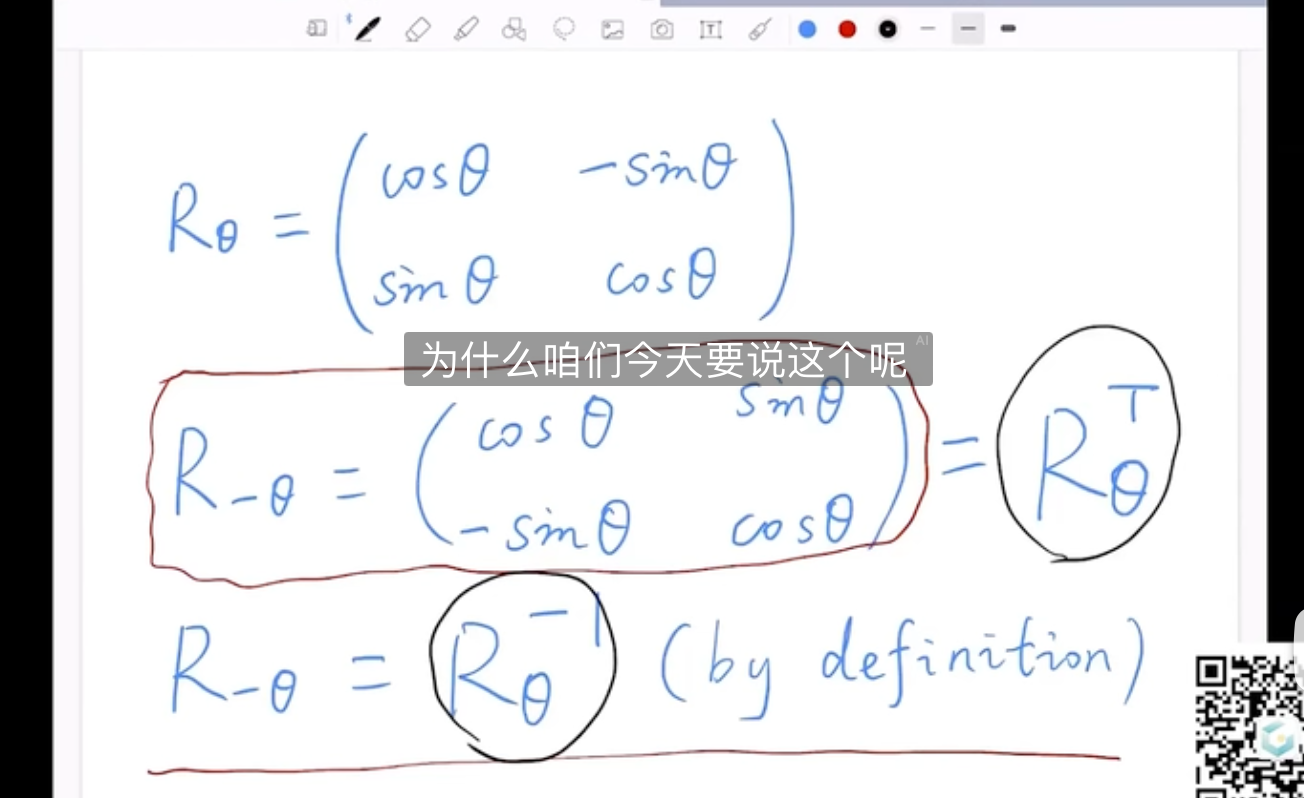 R_θ = ( cosθ -sinθ
sinθ cosθ )
为什么咱们今天要说这个呢 AI
R_-θ = ( cosθ sinθ
-sinθ cosθ ) = R_θ^T
R_-θ = R_θ^-1 (by definition)